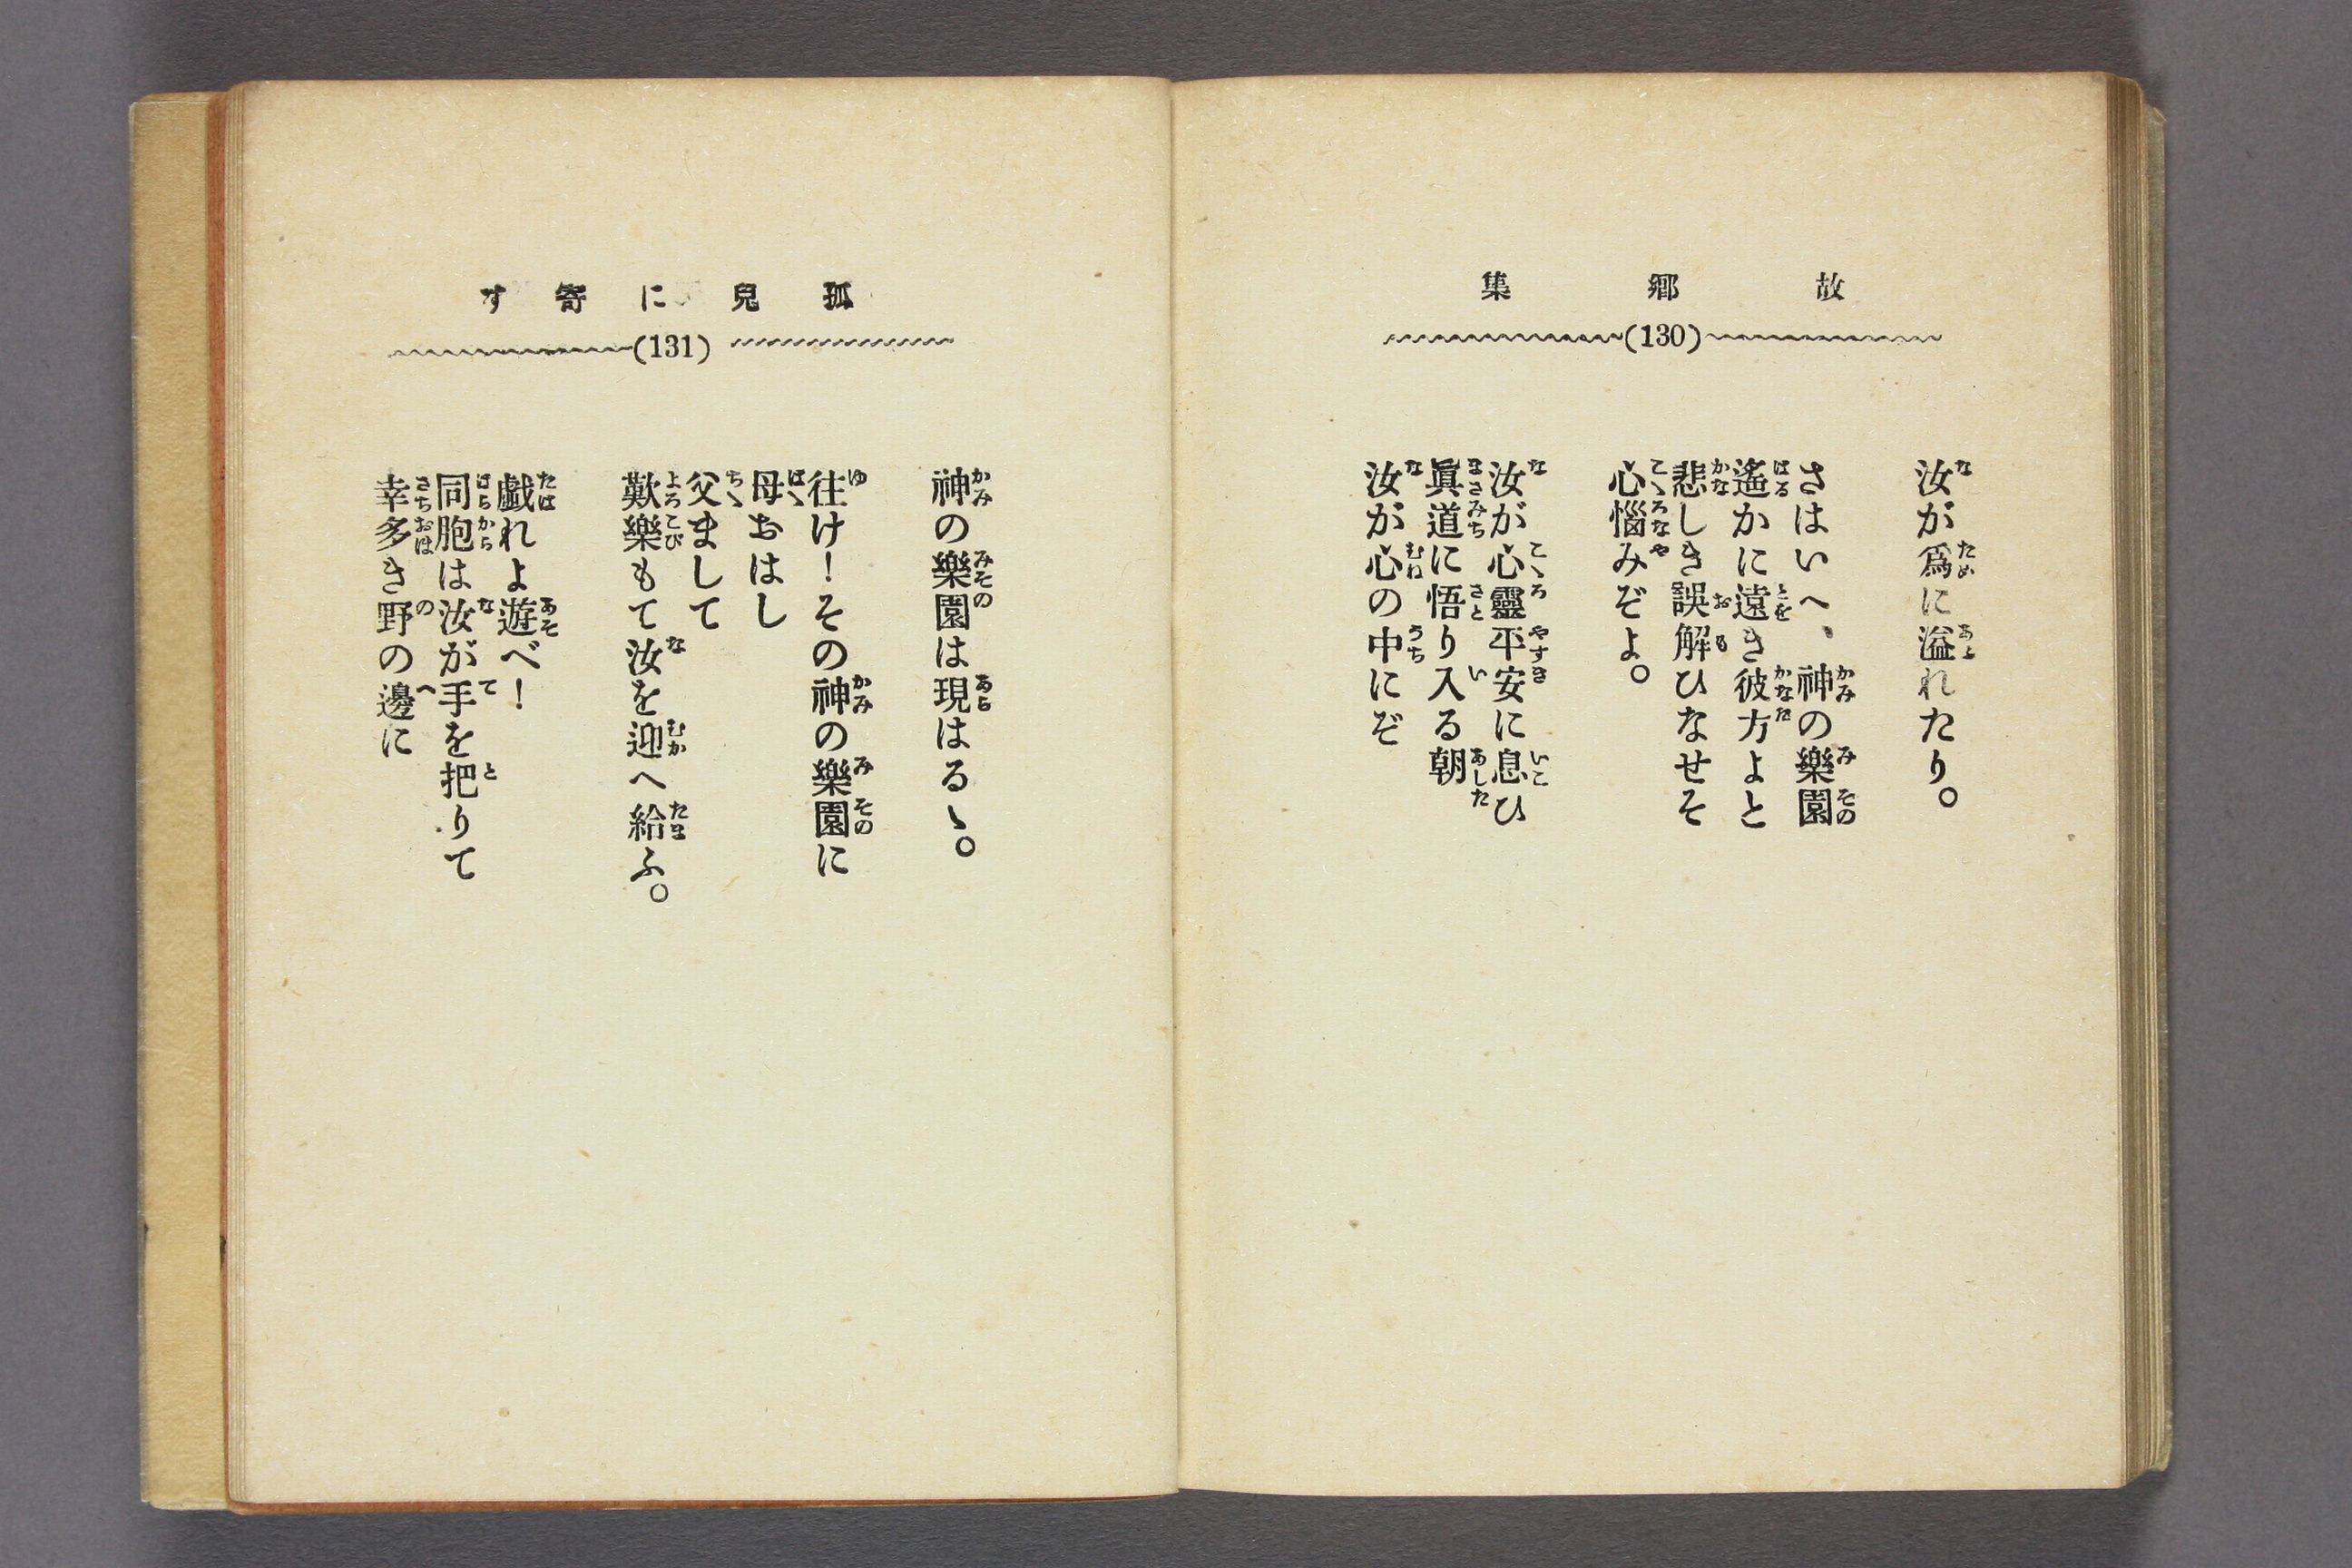 故鄕集
(130)
汝が爲に溢れたり。
さはいへ、神の樂園
遙かに遠き彼方よと
悲しき誤解ひなせそ
心惱みぞよ。
汝が心靈平安に息ひ
眞道に悟り入る朝
汝が心の中にぞ
孤兒に寄す
(131)
神の樂園は現はるゝ。
往け！その神の樂園に
母おはし
父まして
歡樂もて汝を迎へ給ふ。
戯れよ遊べ！
同胞は汝が手を把りて
幸多き野の邊に